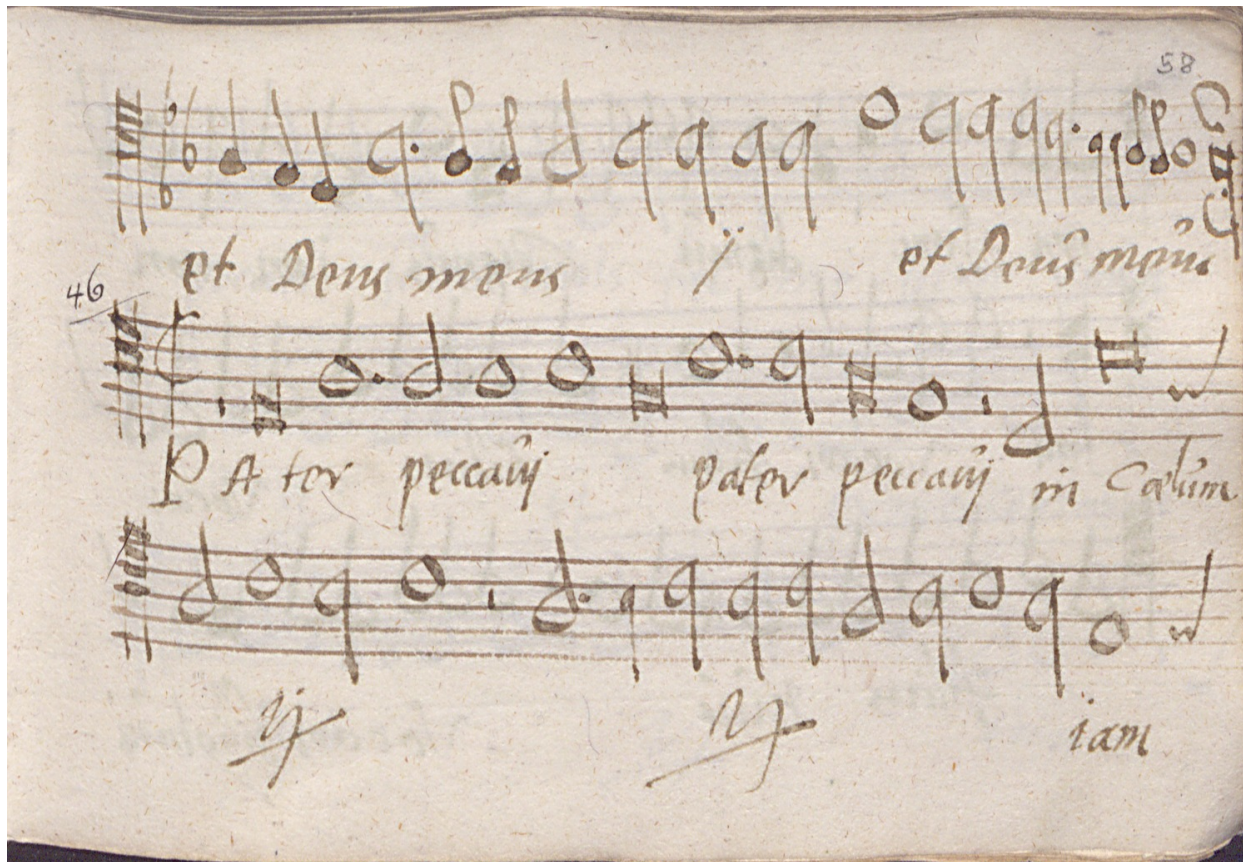 58
et Deus meus ij et Deus meus
46
PAter peccavij pater peccavij in Cœlum
ij ij iam